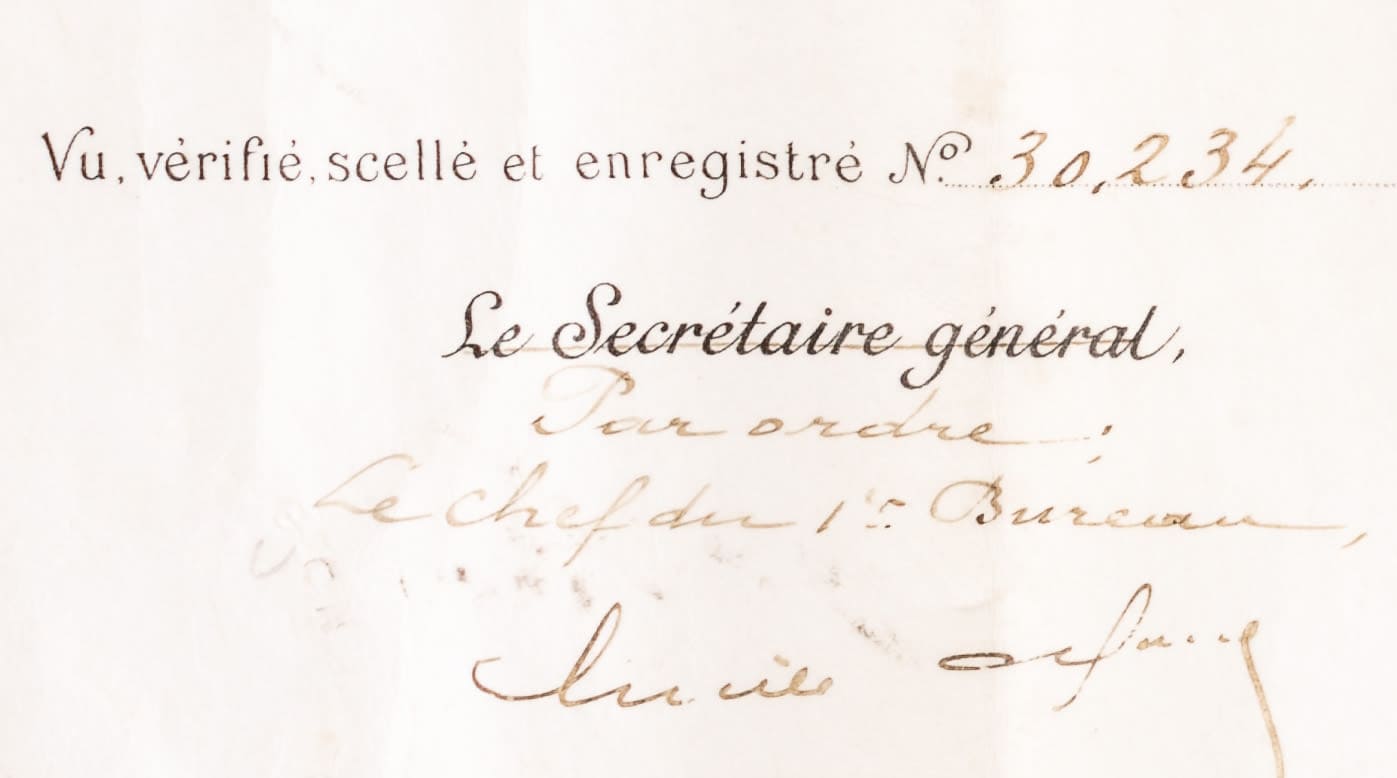 Vu, vérifié, scellé et enregistré Nº. 30,234.
Le Secrétaire général,
Par ordre,
Le Chef du 1er Bureau,